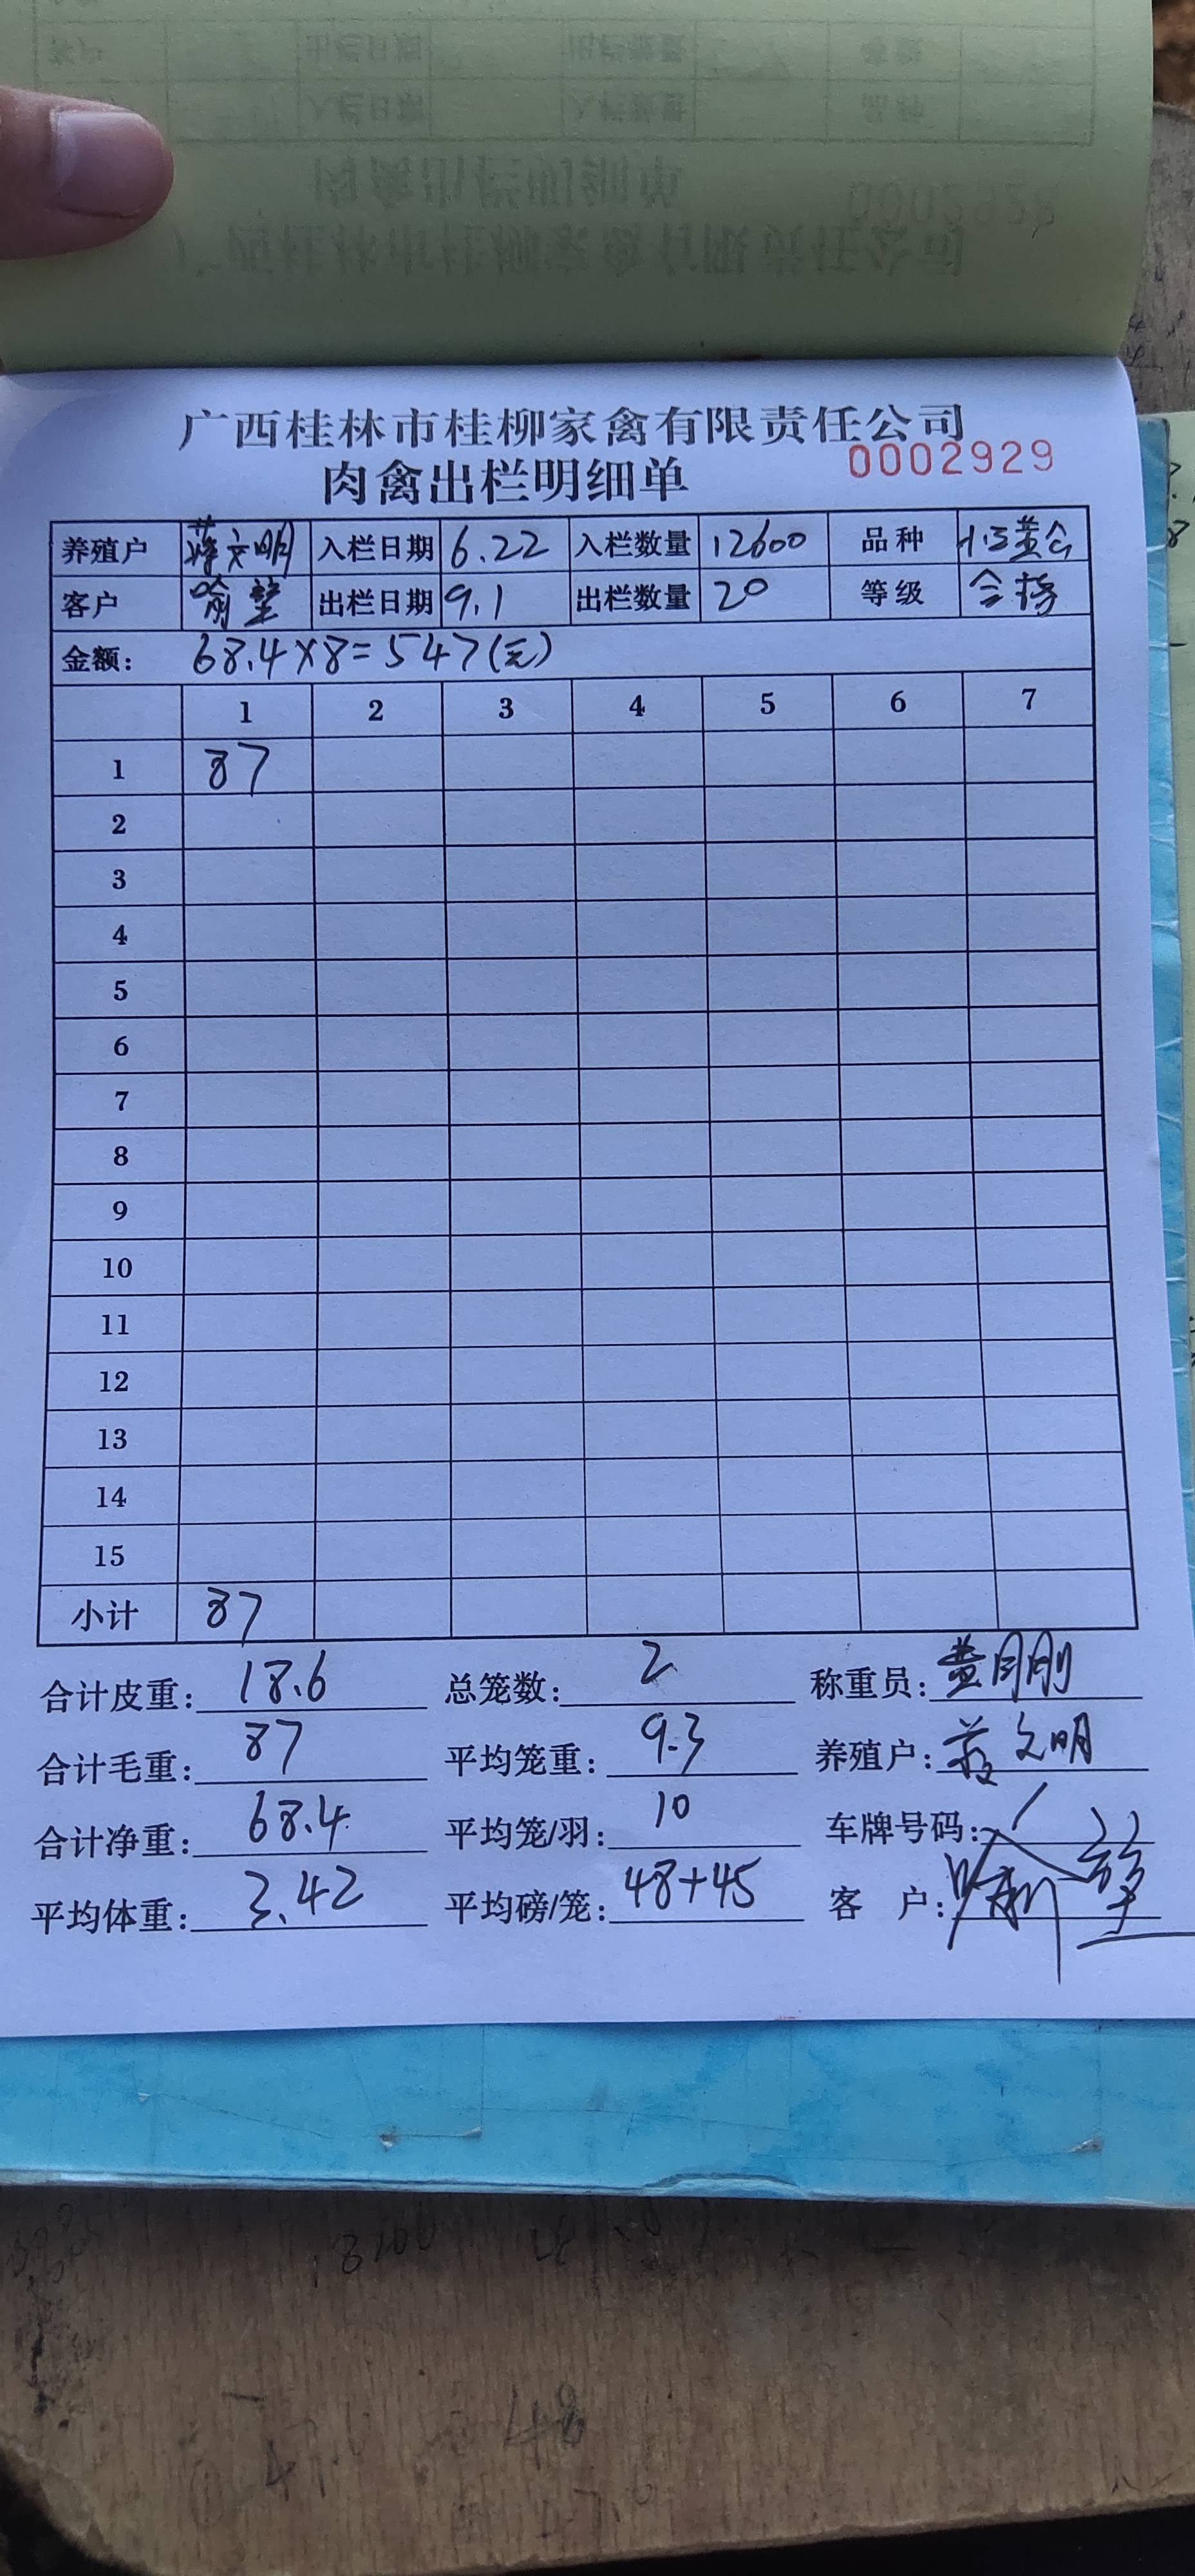 广西桂林市桂柳家禽有限责任公司
肉禽出栏明细单 0002929
养殖户 蒋文明 入栏日期 6.22 入栏数量 12600 品种
客户 喻 出栏日期 9.1 出栏数量 20 等级 合格
金额: 68.4×8=547(元)
1 2 3 4 5 6 7
1 87
2
3
4
5
6
7
8
9
10
11
12
13
14
15
小计 87
合计皮重: 18.6 总笼数: 2 称重员: 黄月刚
合计毛重: 87 平均笼重: 9.3 养殖户: 蒋文明
合计净重: 68.4 平均笼/羽: 10 车牌号码: /
平均体重: 3.42 平均磅/笼: 48+45 客 户: 喻